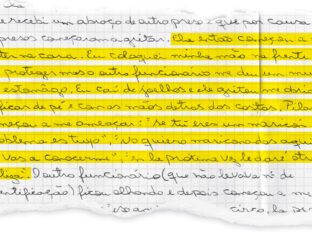 da
e recebi um abraço de outro preso e que por causa
presos começaram a gritar. Ele então começou a
ter na cara. Eu coloquei minha mão na frente
proteger mas o outro funcionário me deu um
estomago. Eu caí de joelhos e ele gritou me
ficar de pé e com as mãos detras das costas.
meçou a me ameaçar: "se tú eres un maricón
oblema es tuyo", "No quiero maricones das
Vas a conocerme". "en la próxima vez le daré otra
O outro funcionário (que não levava nº de
entificação) ficou olhando e depois começou a me
circo, la